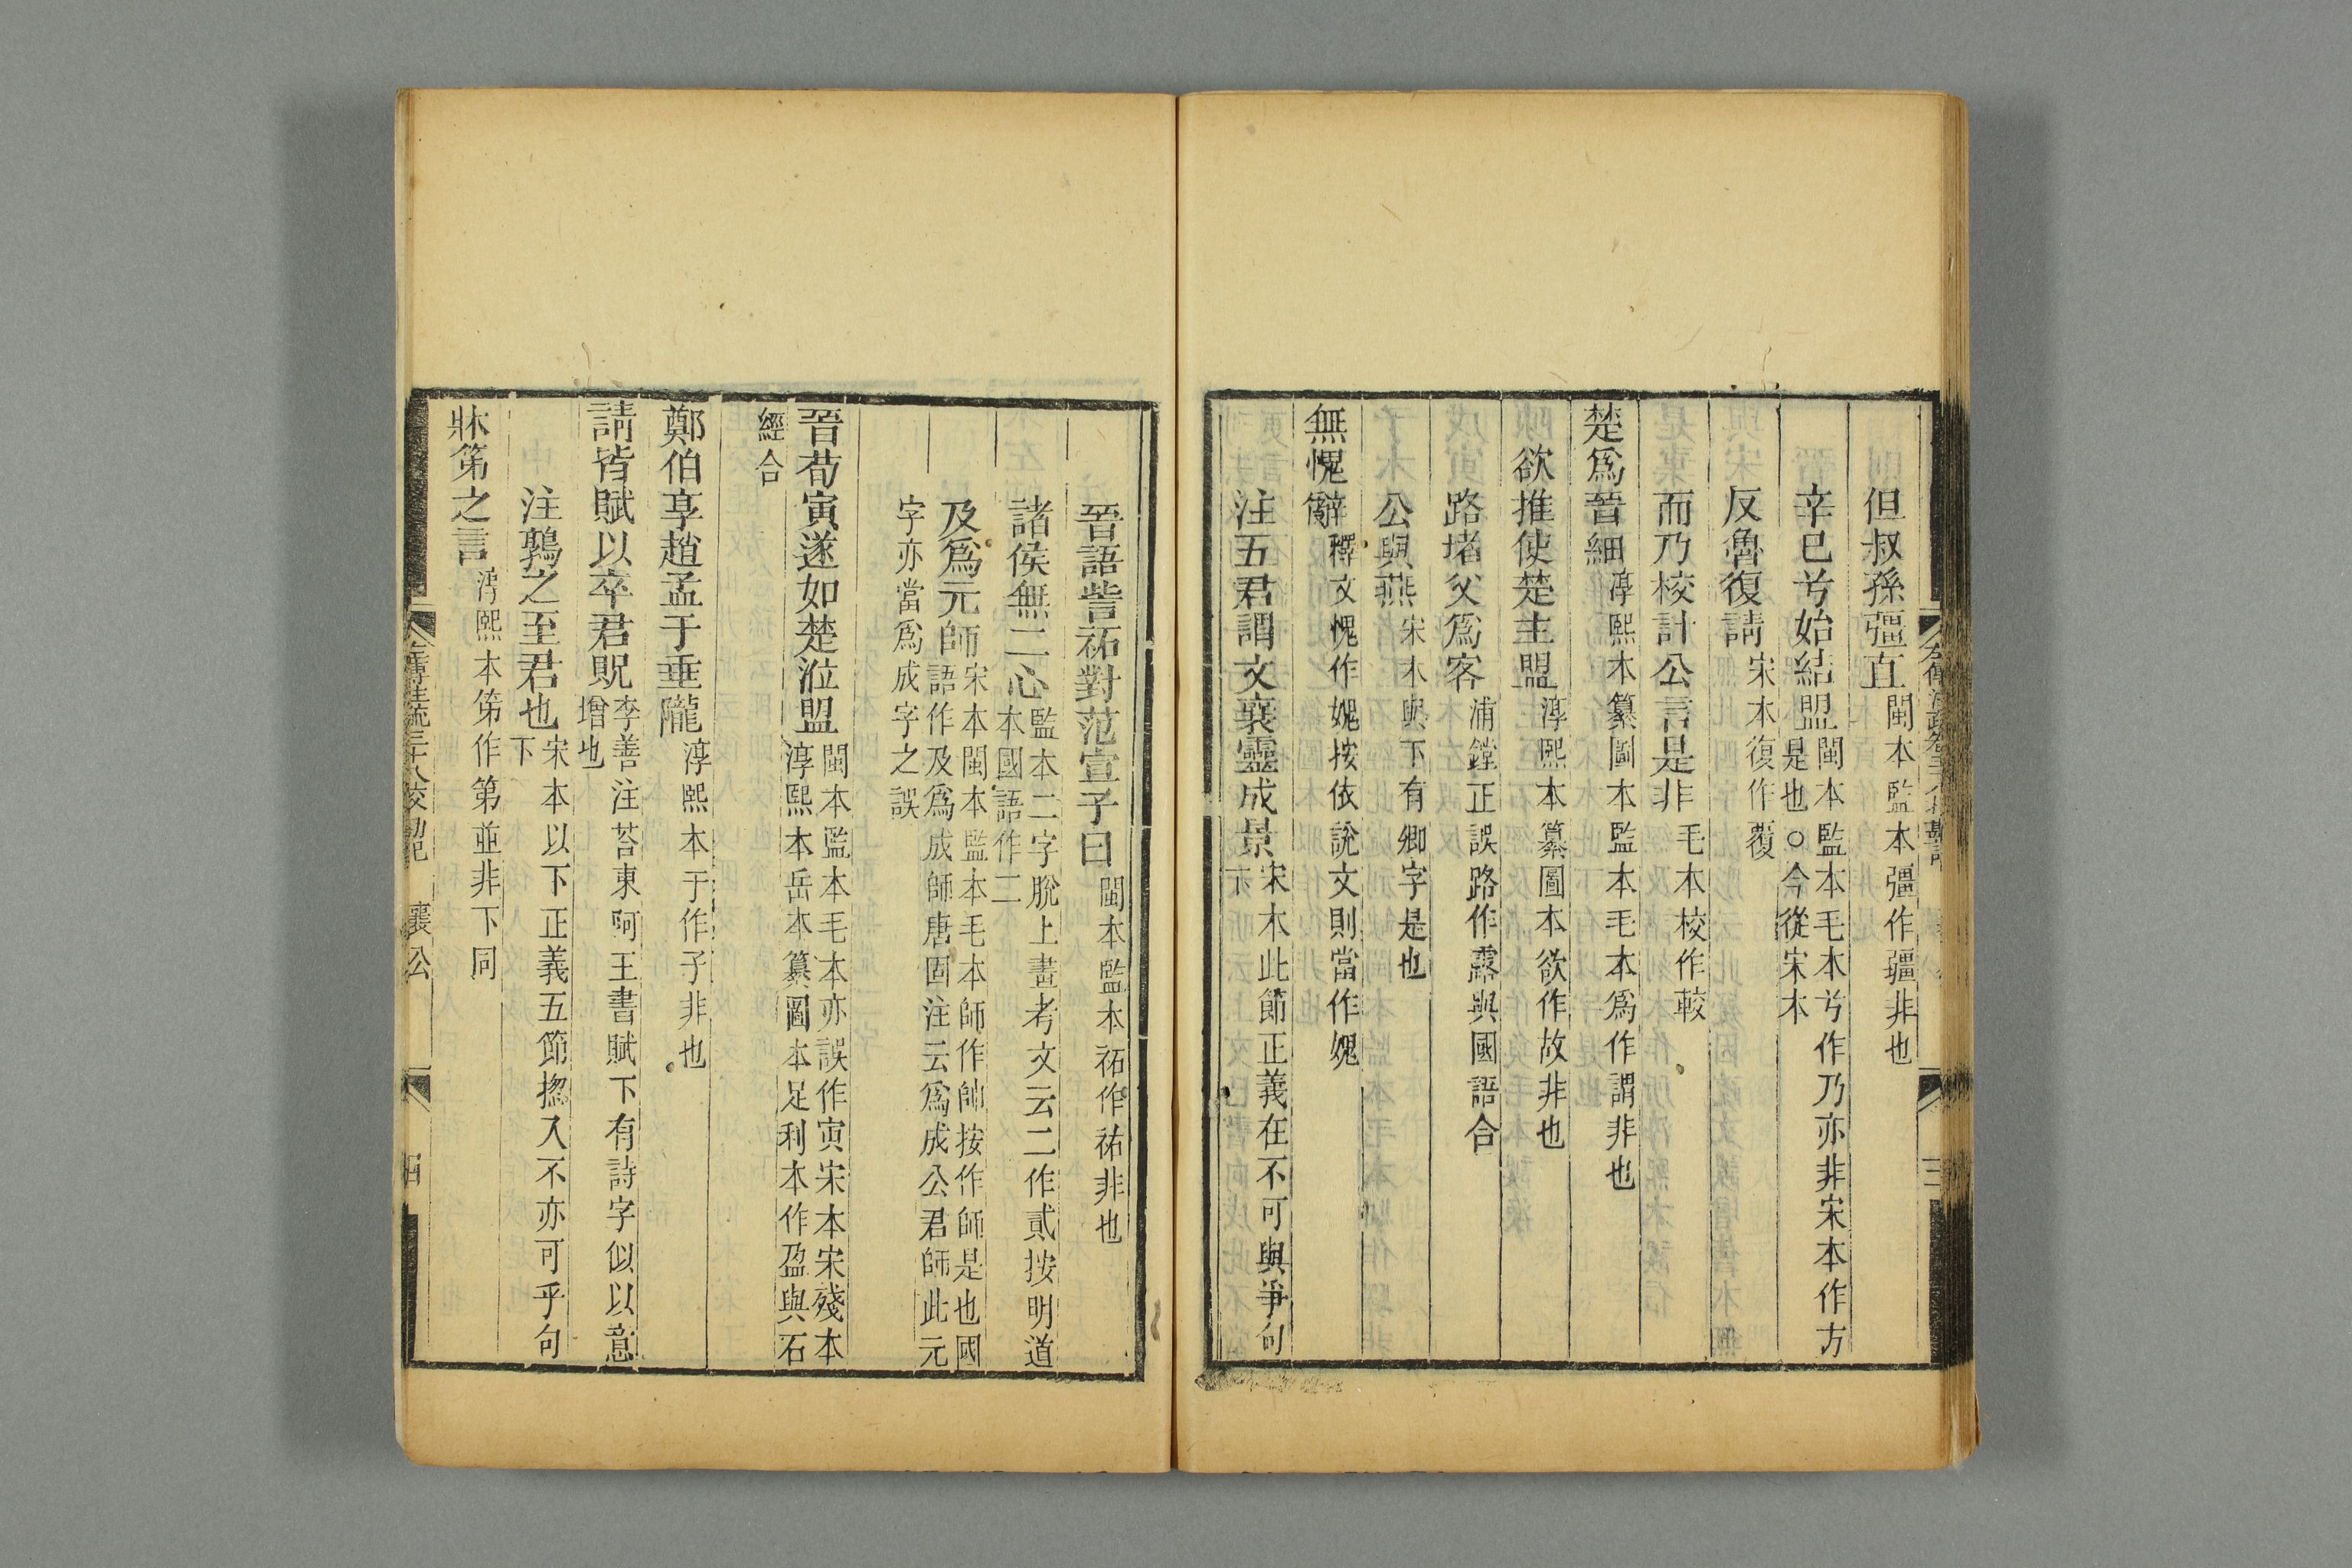 但叔孫彊直閩本監本彊作疆非也
辛巳兮始結盟閩本監本毛本兮作乃亦非宋本作方是也○今從宋本
反魯復請宋本復作覆
而乃校計公言是非毛本校作較
楚爲晉細淳熙本纂圖本監本毛本爲作謂非也
欲推使楚主盟淳熙本纂圖本欲作故非也
路堵父爲客浦鏜正誤路作露與國語合
公與燕宋本與下有卿字是也
無愧辭釋文愧作媿按依說文則當作媿
注五君謂文襄靈成景宋本此節正義在不可與爭句下
晉語訾祏對范宣子曰閩本監本祏作祐非也
諸侯無二心監本二字脫上畫考文云二作貳按明道本國語作二
及爲元師宋本閩本監本毛本師作帥按作師是也國語作及爲成師唐固注云爲成公君師此元
字亦當爲成字之誤
晉荀寅遂如楚涖盟閩本監本毛本亦誤作寅宋本宋殘本淳熙本岳本纂圖本足利本作盈與石
經合
鄭伯享趙孟于垂隴淳熙本于作子非也
請皆賦以卒君貺李善注荅東阿王書賦下有詩字似以意增也
注鶉之至君也宋本以下正義五節揔入不亦可乎句下
牀笫之言淳熙本笫作第並非下同
襄公